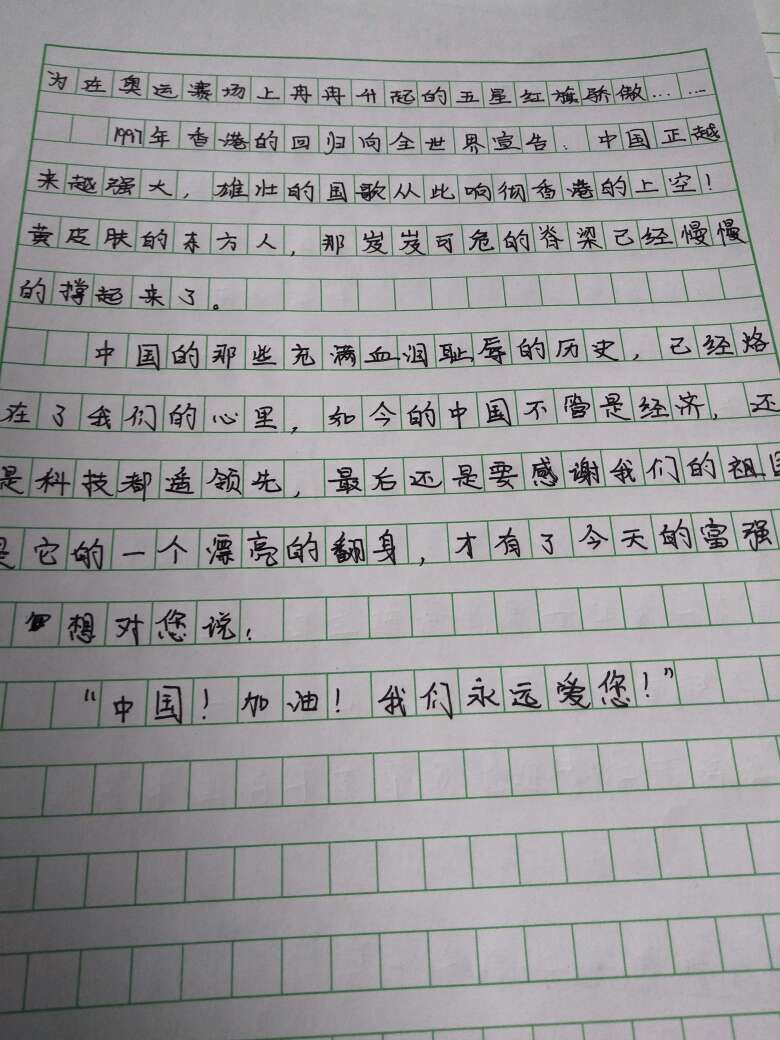 为在奥运赛场上冉冉升起的五星红旗骄傲……
1997年香港的回归向全世界宣告：中国正越
来越强大，雄壮的国歌从此响彻香港的上空！
黄皮肤的东方人，那岌岌可危的脊梁已经慢慢
的撑起来了。
中国的那些充满血泪耻辱的历史，已经烙
在了我们的心里，如今的中国不管是经济，还
是科技都遥领先，最后还是要感谢我们的祖国
是它的一个漂亮的翻身，才有了今天的富强
想对您说：
“中国！加油！我们永远爱您！”